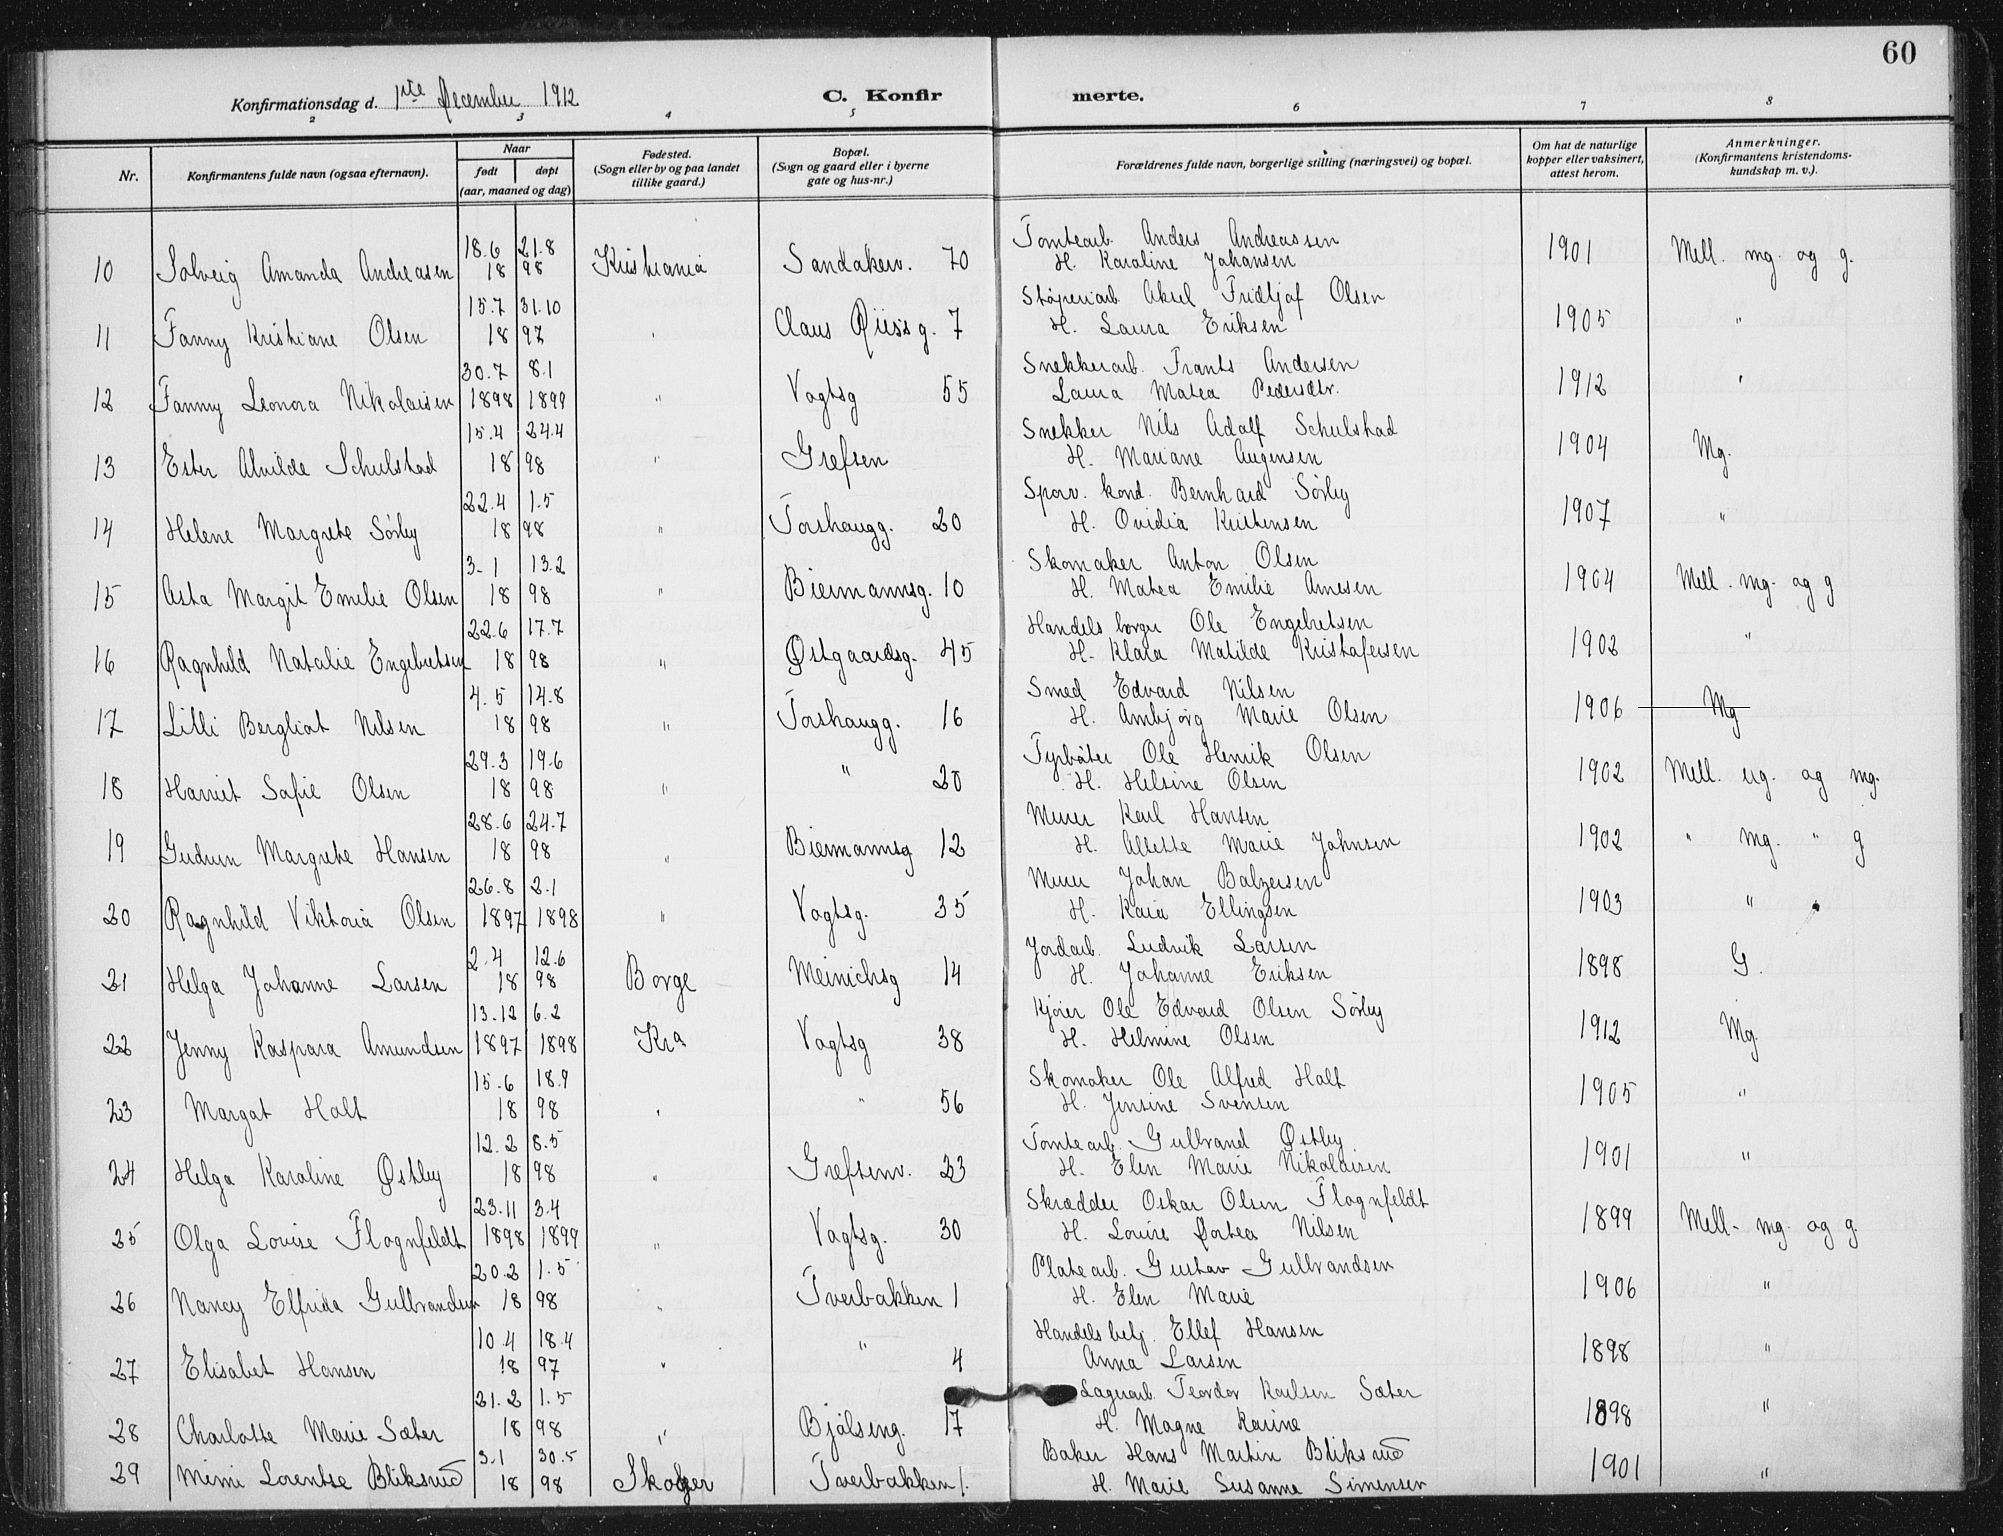 60
Konfirmationsdag d. 1ste December 1912 C. Konfirmerte.
2 3 4 5 6 7 8
Nr. Konfirmantens fulde navn (ogsaa efternavn). Naar født døpt (aar, maaned og dag) Fødested. (Sogn eller by og paa landet tillike gaard.) Bopæl. (Sogn og gaard eller i byerne gate og hus-nr.) Forældrenes fulde navn, borgerlige stilling (næringsvei) og bopæl. Om hat de naturlige kopper eller vaksinert, attest herom. Anmerkninger. (Konfirmantens kristendoms-kundskap m. v.).
18.6 21.8 Tomtearb. Anders Andreassen
10 Solveig Amanda Andreasen 18 98 Kristiania Sandakerv. 70 H. Karoline Johansen 1901 Mell. mg. og g.
15.7 31.10 Støperiarb. Aksel Fridtjof Olsen
11 Fanny Kristiane Olsen 18 97 " Claus Riiss g. 7 H. Laura Eriksen 1905 "
30.7 8.1 Snekkerarb. Frants Andersen
12 Fanny Leonora Nikolaisen 1898 1899 " Vogtsg 55 Laura Matea Pedersdtr. 1912 "
15.4 24.4 Snekker Nils Adolf Schulstad
13 Ester Alvilde Schulstad 18 98 " Grefsen H. Mariane Augensen 1904 Mg.
22.4 1.5 Sporv. kond. Bernhard Sørby
14 Helene Margrete Sørby 18 98 " Torshaugg. 20 H. Ovidia Kristensen 1907 "
3.1 13.2 Skomaker Anton Olsen
15 Asta Margit Emilie Olsen 18 98 " Biermannsg. 10 H. Matea Emilie Arnesen 1904 Mell. mg. og g
22.6 17.7 Handelsborger Ole Engebretsen
16 Ragnhild Natalie Engebretsen 18 98 " Østgaardsg. 45 H. Klara Matilde Kristofersen 1902 "
4.5 14.8 Smed Edvard Nilsen
17 Lilli Bergliot Nilsen 18 98 " Torshaugg. 16 H. Arnbjørg Marie Olsen 1906 Mg
29.3 19.6 Fyrbøter Ole Henrik Olsen
18 Harriet Sofie Olsen 18 98 " " 20 H. Helsine Olsen 1902 Mell. ug. og mg.
28.6 24.7 Murer Karl Hansen
19 Gudrun Margrete Hansen 18 98 " Biermannsg 12 H. Allette Marie Johnsen 1902 " mg. " g
26.8 2.1 Murer Johan Balzersen
20 Ragnhild Viktoria Olsen 1897 1898 " Vogtsg. 35 H. Kaia Ellingsen 1903 "
2.4 12.6 Jordarb. Ludvik Larsen
21 Helga Johanne Larsen 18 98 Borge Meinichsg 14 H. Johanne Eriksen 1898 G.
13.12 6.2 Kjører Ole Edvard Olsen Sørby
22 Jenny Kaspara Amundsen 1897 1898 Kra Vogtsg 38 H. Helmine Olsen 1912 Mg.
15.6 18.9 Skomaker Ole Alfred Holt
23 Margot Holt 18 98 " " 56 H. Jensine Svensen 1905 "
12.2 8.5 Tomtearb. Gulbrand Østby
24 Helga Karoline Østby 18 98 " Grefsenv. 23 H. Elen Marie Nikolaisen 1901 "
23.11 3.4 Skrædder Oskar Olsen Flognfeldt
25 Olga Lovise Flognfeldt 1898 1899 " Vogtsg. 30 H. Lovise Dortea Nilsen 1899 Mell. mg. og g.
20.2 1.5 Platearb. Gustav Gulbrandsen
26 Nancy Elfrida Gulbrandsen 18 98 " Tverbakken 1 H. Elen Marie 1906 "
10.4 18.4 Handelsbetj. Ellef Hansen
27 Elisabet Hansen 18 97 " " 4 Anna Larsen 1898 "
21.2 1.5 Lagerarb. Teordor Karlsen Sæter
28 Charlotte Marie Sæter 18 98 " Bjølseng. 17 H. Magne Karine 1898 "
3.1 30.5 Baker Hans Martin Bliksrud
29 Mimi Lorentse Bliksrud 18 98 Skoger Tverbakken 1. H. Marie Susanne Simensen 1901 "